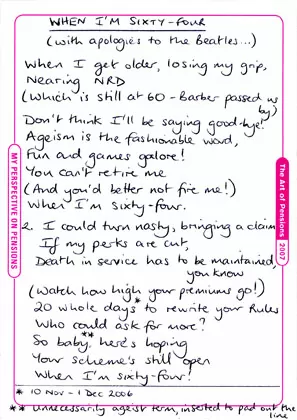 WHEN I'M SIXTY-FOUR
(with apologies to the Beatles...)
When I get older, losing my grip,
Nearing NRD
(Which is still at 60 - Barber passed us by)
Don't think I'll be saying good-bye!
Ageism is the fashionable word,
Fun and games galore!
You can't retire me
(And you'd better not fire me!)
When I'm sixty-four.
2. I could turn nasty, bringing a claim
If my perks are cut,
Death in service has to be maintained,
you know
(Watch how high your premiums go!)
20 whole days* to rewrite your Rules
Who could ask for more?
So baby,** here's hoping
Your scheme's still open
When I'm sixty-four!
* 10 NOV - 1 DEC 2006
** unnecessarily ageist term, inserted to pad out the line
MY PERSPECTIVE ON PENSIONS
The Art of Pensions 2007